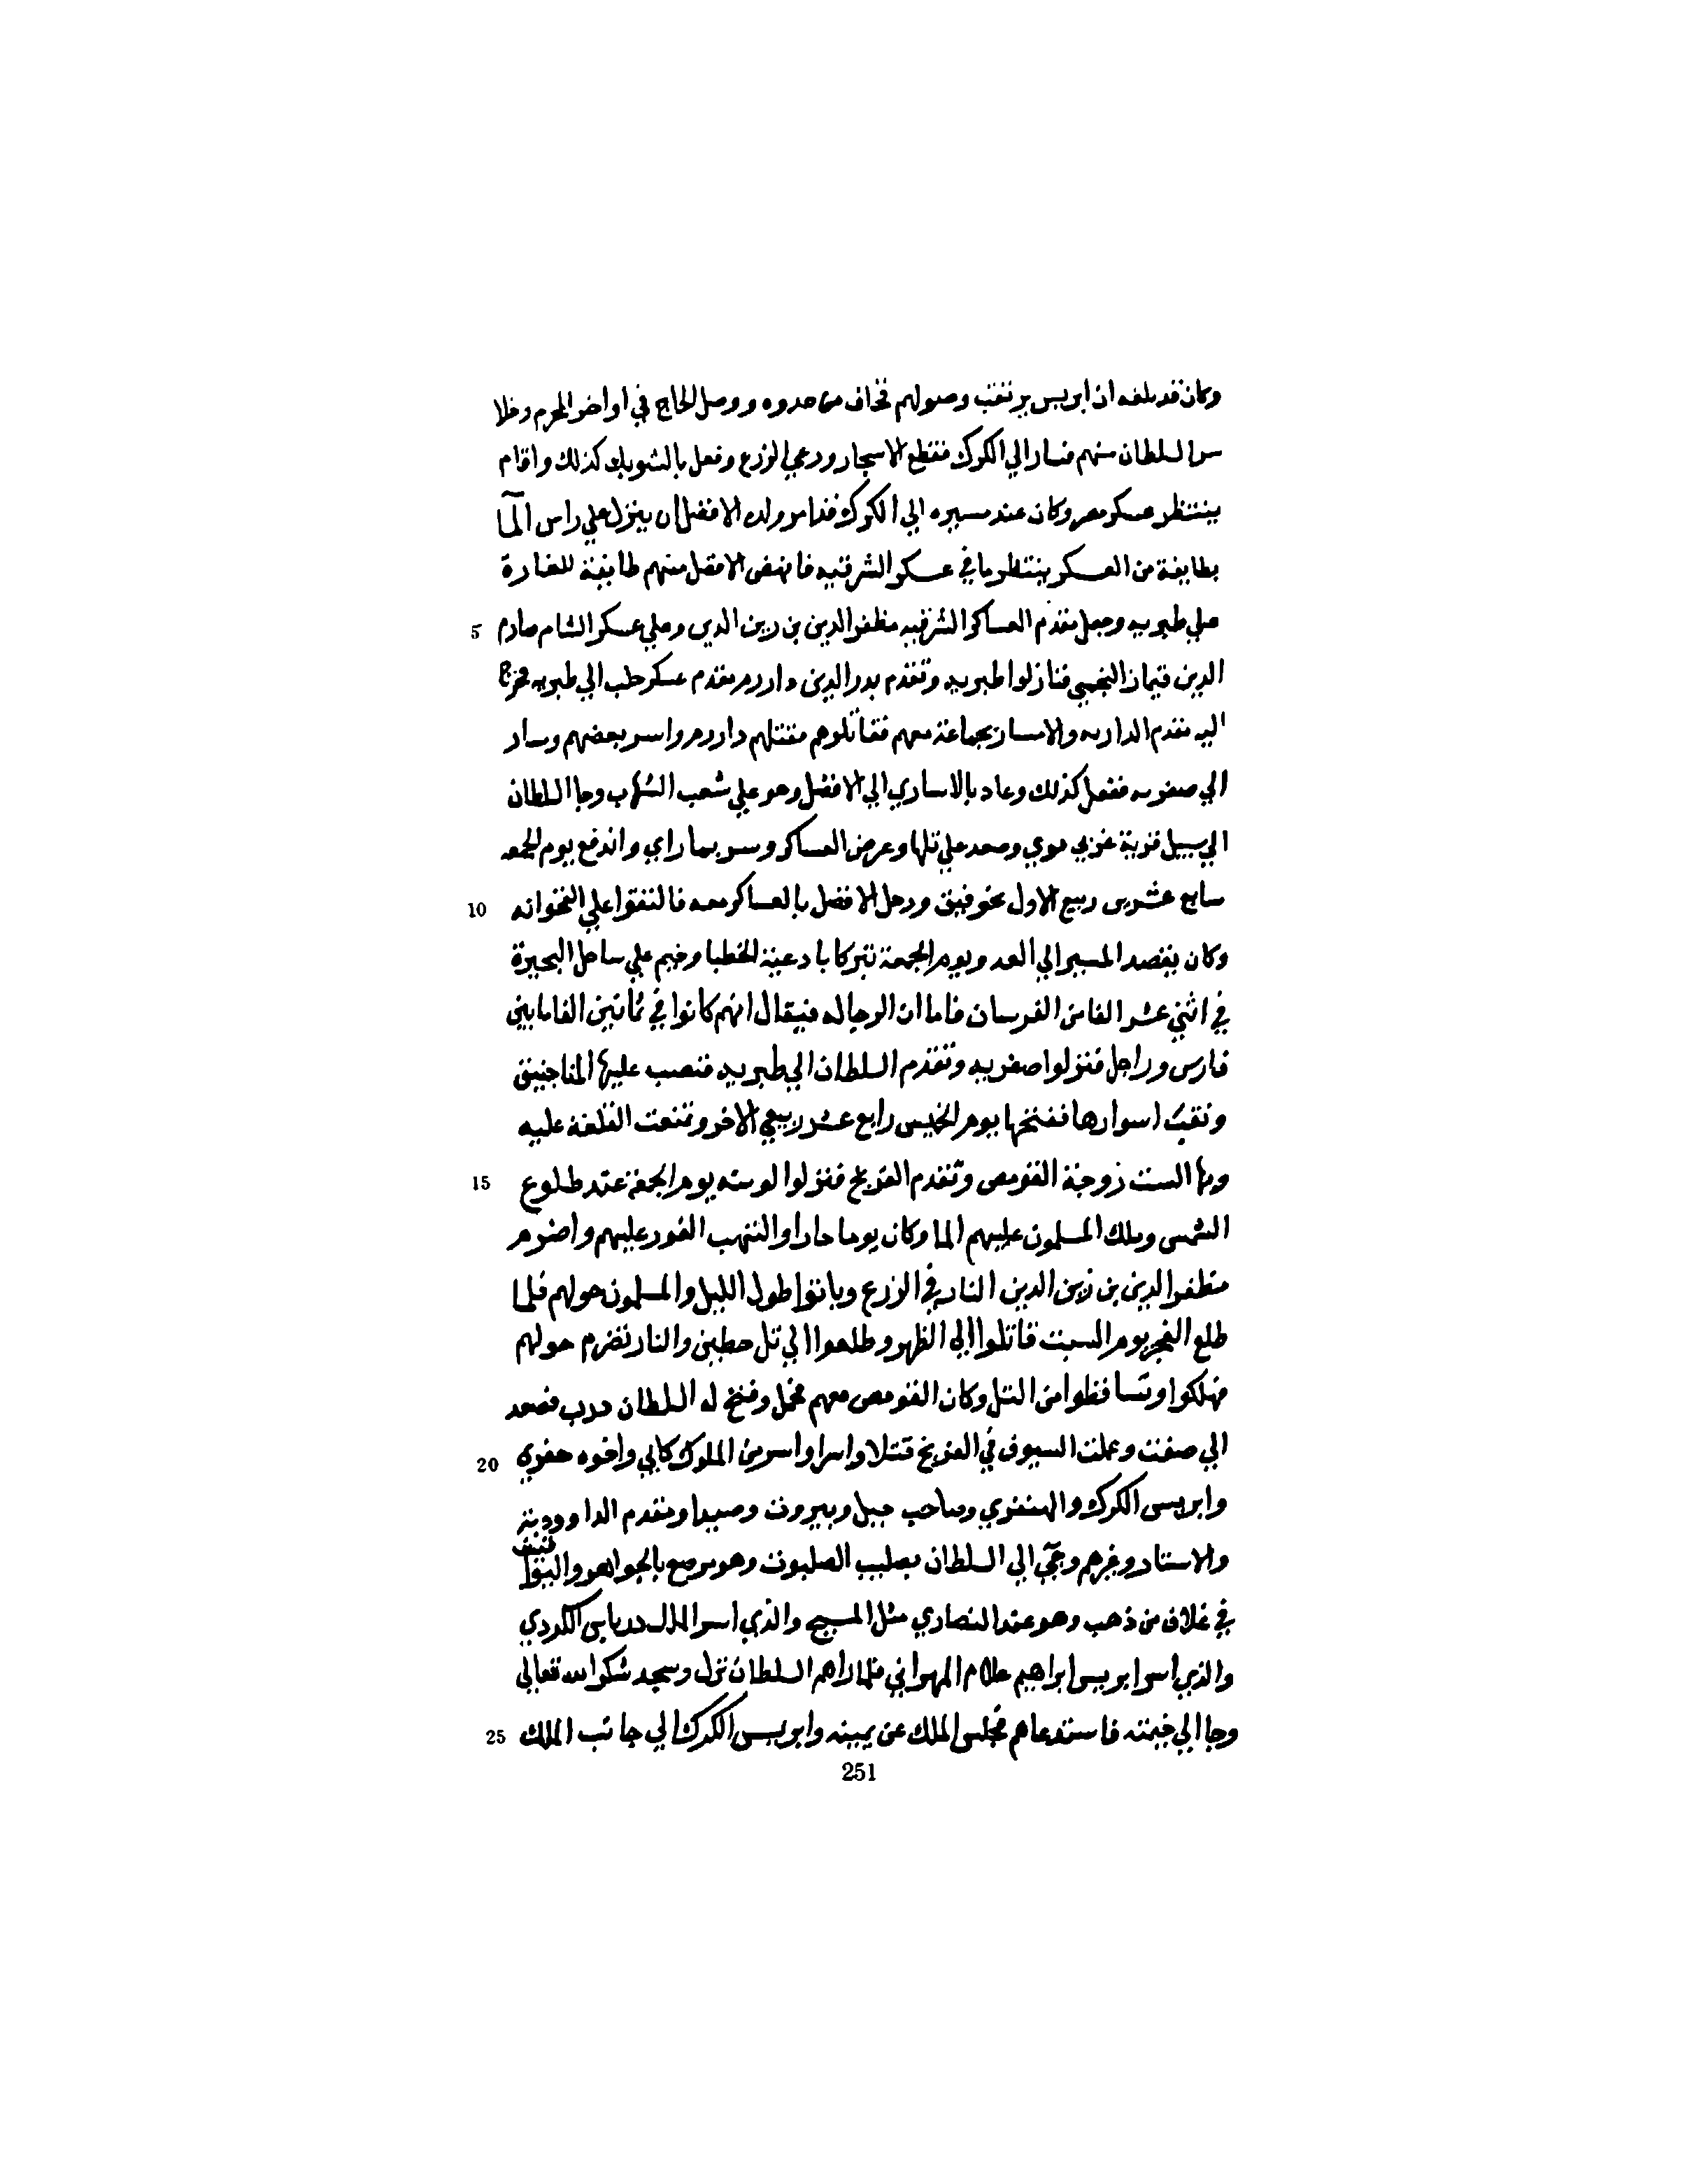 وكان قد بلغه ان ابريس يرتقب وصولهم فخاف من غدره ووصل الحاج في اواخر المحرم وخلا
سر السلطان منهم فسار الي الكرك فقطع الاسجار ورعي الزرع وفعل بالشوبك كذلك واقام
ينتظر عسكر مصر وكان عند مسيره الي الكرك قد امر ولده الافضل ان ينزل علي راس المآ
بطايفة من العسكر ينتظر باقي عسكر الشرقيه فانهض الافضل منهم طايفة للغارة
علي طبريه وجعل مقدم العساكر الشرقيه مظفر الدين بن زين الدين وعلي عسكر الشام صارم 5
الدين قيماز النجمي فنازلوا طبريه وتقدم بدر الدين داردم مقدم عسكر حلب الي طبريه فخرج
اليه مقدم الداريه والاسبتار بجماعة معهم فقاتلوهم فقتلهم داردم واسر بعضهم وسار
الي صفوريه ففعل كذلك وعاد بالاساري الي الافضل وهو علي شعب الشهاب وجا السلطان
الي سبيل قرية غربي نوي وصعد علي تلها وعرض العساكر وسر بما راي واندفع يوم الجمعه
سابع عشر من ربيع الاول نحو فيق ورحل الافضل بالعساكر معه فالتقوا علي القحوانه 10
وكان يقصد المسير الي العدو يوم الجمعة تبركا بادعية الخطبا وخيم علي ساحل البحيرة
في اثني عشر الفا من الفرسان فاما ان الرجاله فيقال انهم كانوا في ثمانين الفا ما بين
فارس وراجل فنزلوا صفريه وتقدم السلطان الي طبريه فنصب عليها المناجنيق
ونقب اسوارها ففتحها يوم الخميس رابع عشر ربيع الاخر وتمنعت القلعة عليه
وبها الست زوجة القومص وتقدم الفرنج فنزلوا لوبيه يوم الجمعة عند طلوع 15
الشمس وملك المسلمون عليهم الما وكان يوما حارا والتهب الغور عليهم واضرم
مظفر الدين بن زين الدين النار في الزرع وباتوا طول الليل والمسلمون حولهم فلما
طلع الفجر يوم السبت قاتلوا الي الظهر وطلعوا الي تل حطين والنار تضرم حولهم
فهلكوا وتساقطوا من التل وكان القومص معهم فحمل وفتح له السلطان درب فصعد
الي صفت وعملت السيوف في الفرنج قتلا واسرا واسر من الملوك كاي واخوه جفري 20
وابريس الكرك والهنفري وصاحب جبيل وبيروت وصيدا ومقدم الداوودية
والاستبار وغيرهم وجي الي السلطان بصليب الصلبوت وهو مرصع بالجواهر واليواقيت
في غلاف من ذهب وهو عند النصاري مثل المسيح والذي اسر الملك درباس الكردي
والذي اسر ابريس ابراهيم غلام المهراني فلما راهم السلطان نزل وسجد شكرا لله تعالي
وجا الي خيمته فاستدعاهم فجلس الملك عن يمينه وابريس الكرك الي جانب الملك 25
251